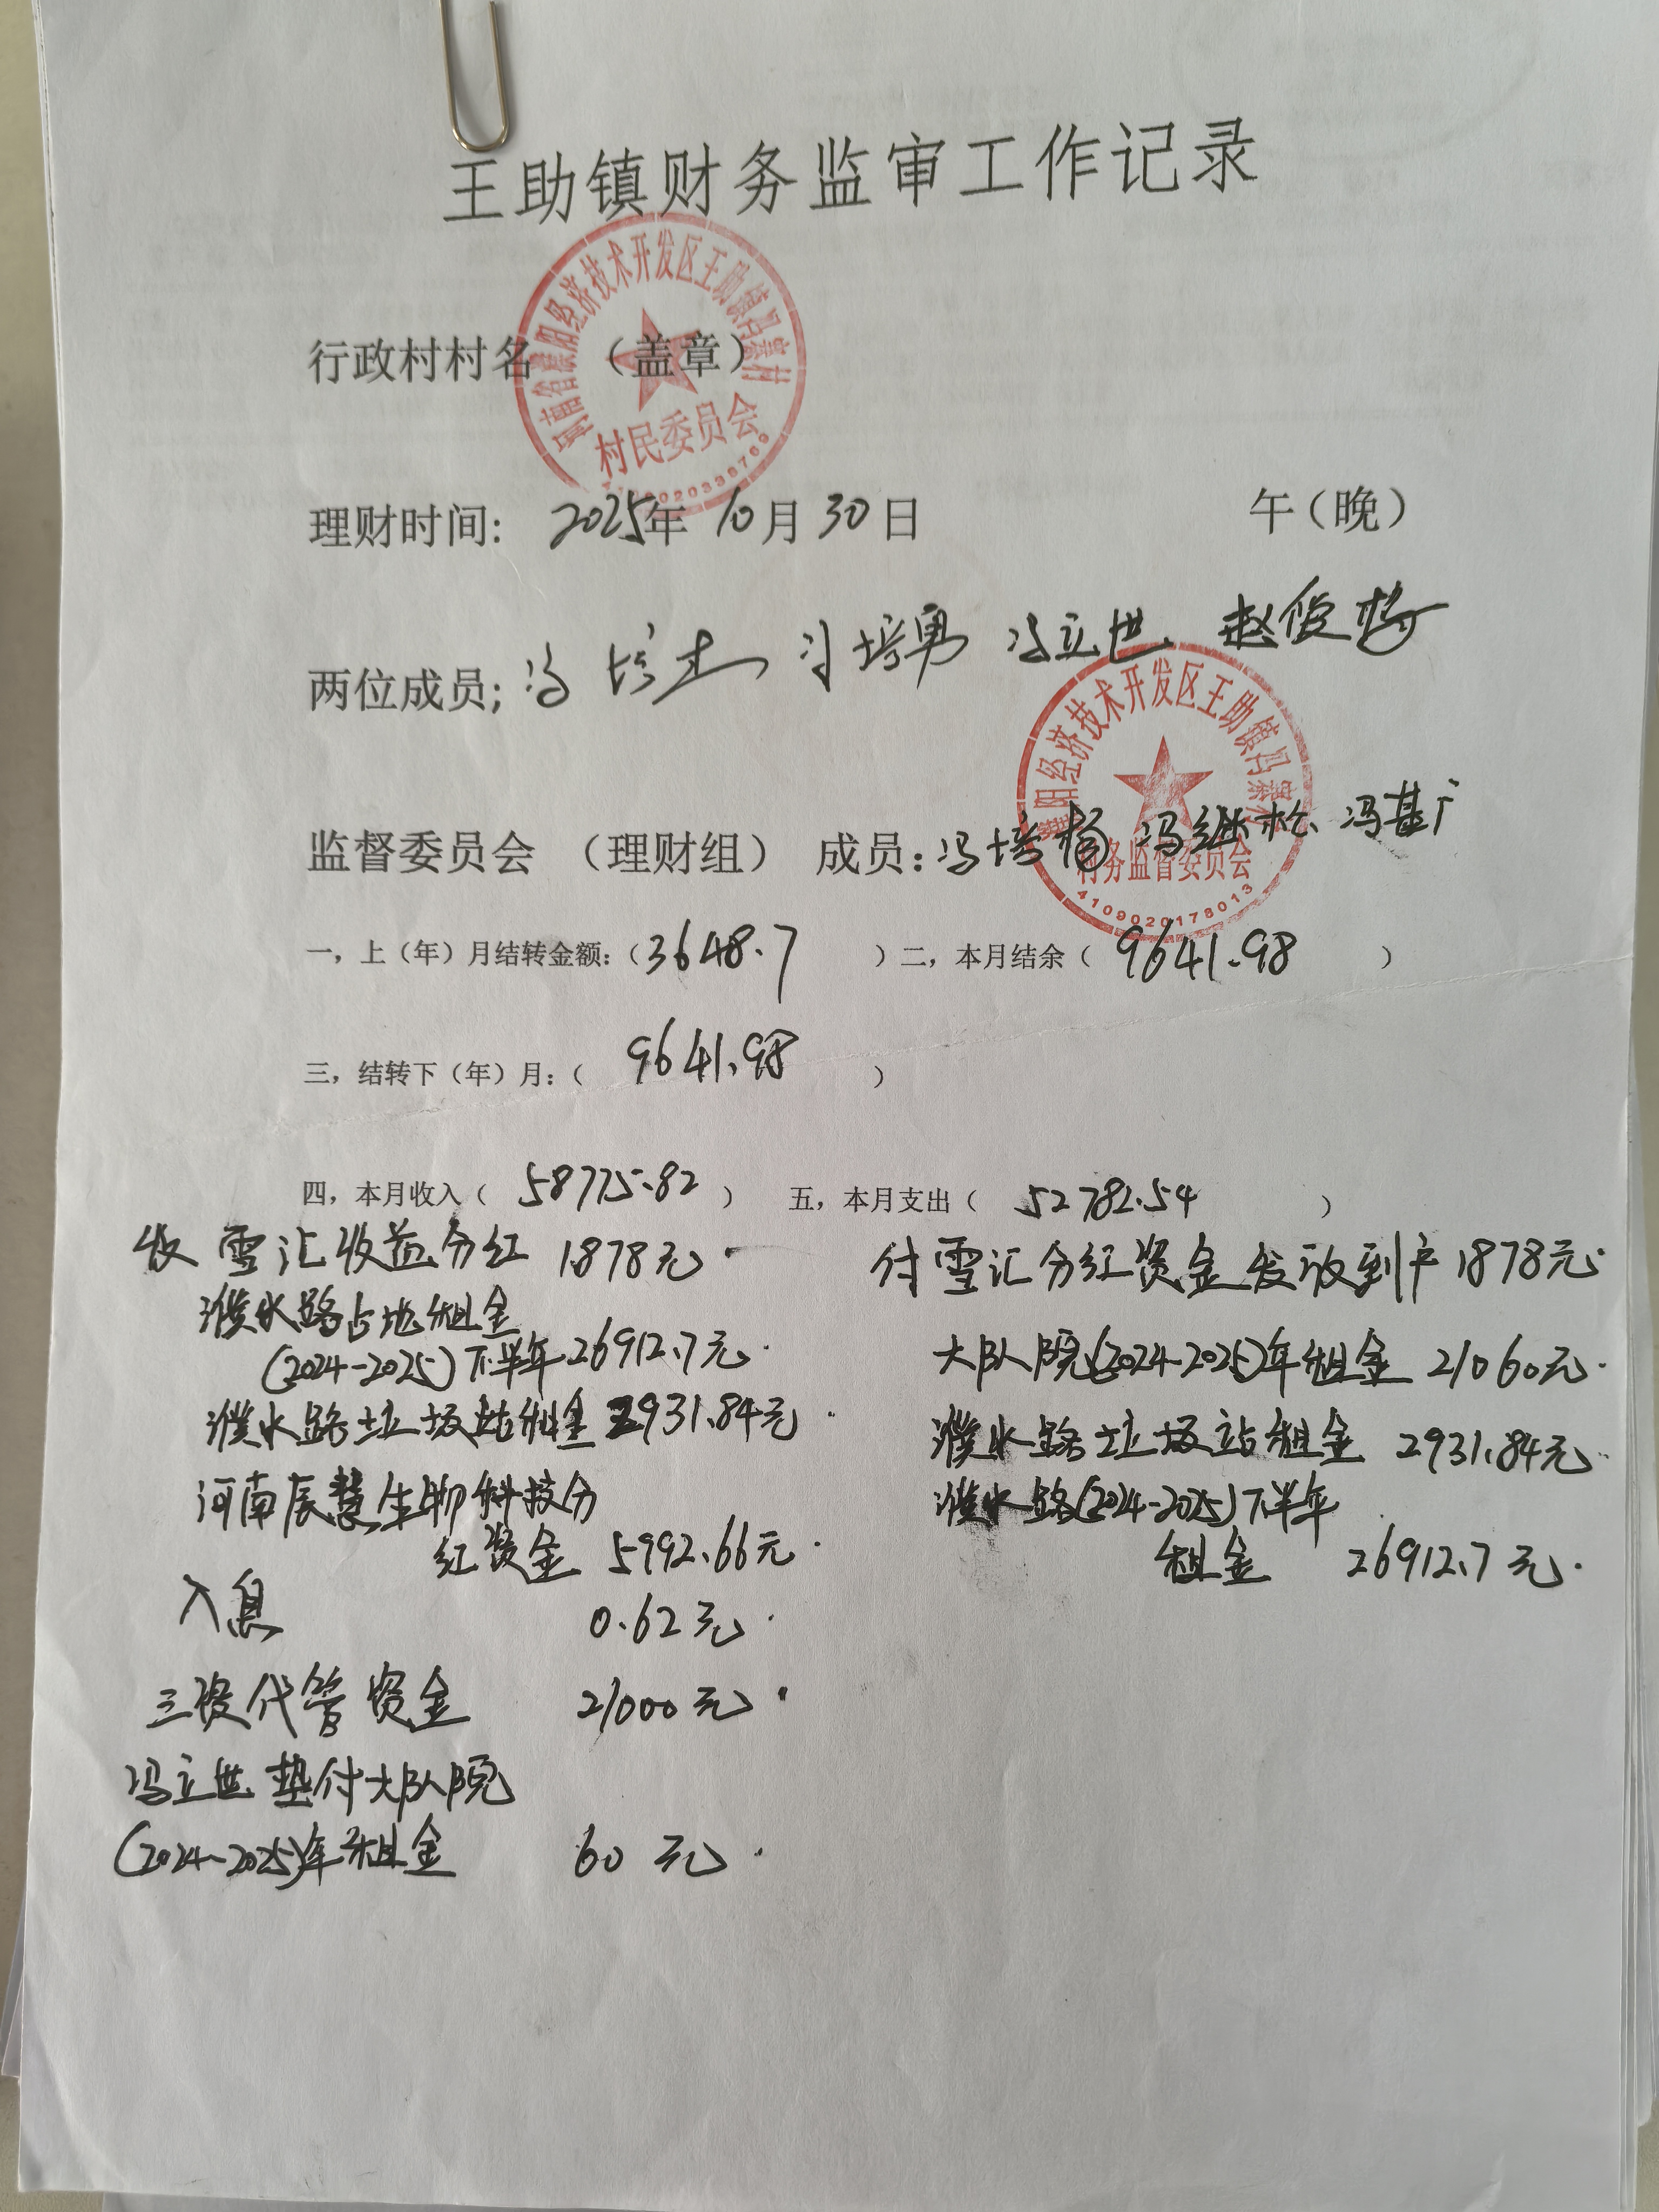 王助镇财务监审工作记录
行政村村名 （盖章）
村民委员会
理财时间: 2025年 10月 30日 午（晚）
两位成员; 冯培杰 冯培勇 冯立世 赵俊梅
监督委员会 （理财组） 成员: 冯培杨 冯继松 冯基广
村务监督委员会
4109020178013
一, 上（年）月结转金额:（3648.7 ）二, 本月结余（ 9641.98 ）
三, 结转下（年）月:（ 9641.98 ）
四, 本月收入（ 58775.82 ） 五, 本月支出（ 52782.54 ）
收雪汇收益分红 1878元. 付雪汇分红资金发放到户1878元.
濮水路占地租金
(2024-2025)下半年26912.7元. 大队院(2024-2025)年租金 21060元.
濮水路垃圾站租金 2931.84元. 濮水路垃圾站租金 2931.84元.
河南辰慧生物科技分 濮水路(2024-2025)下半年
红资金 5992.66元. 租金 26912.7元.
入息 0.62元.
三资代管资金 21000元.
冯立世垫付大队院
(2024-2025)年租金 60元.